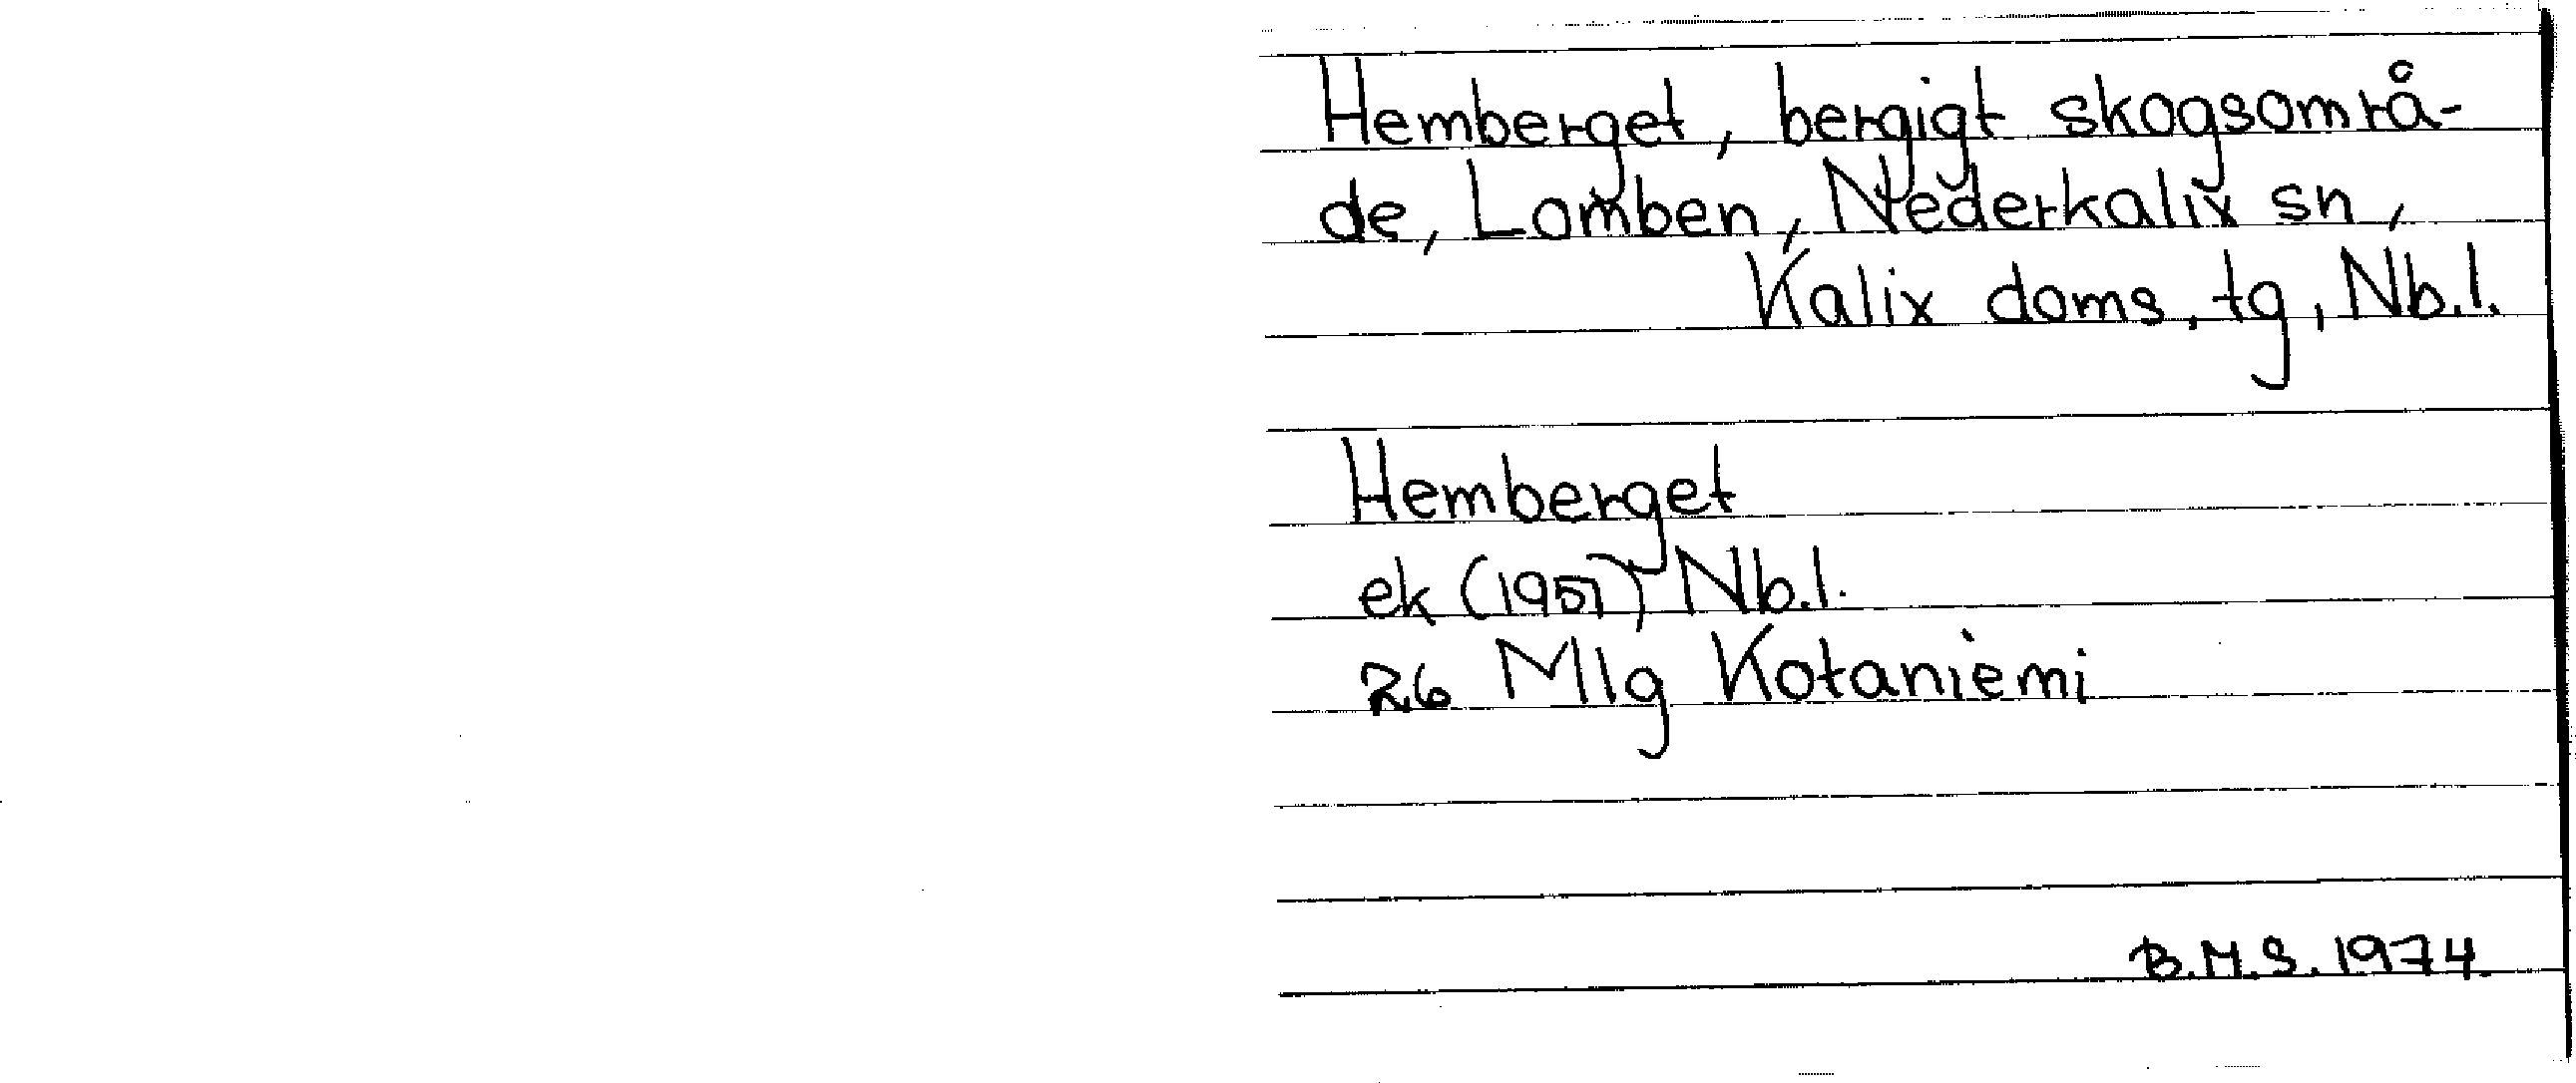 Hemberget, bergigt skogsområ-
de, Lomben, Nederkalix sn,
Kalix doms, tg, Nb.l.
Hemberget
ek (1951) Nb.l.
26 Mlg Kotaniemi
B.M.S. 1974.